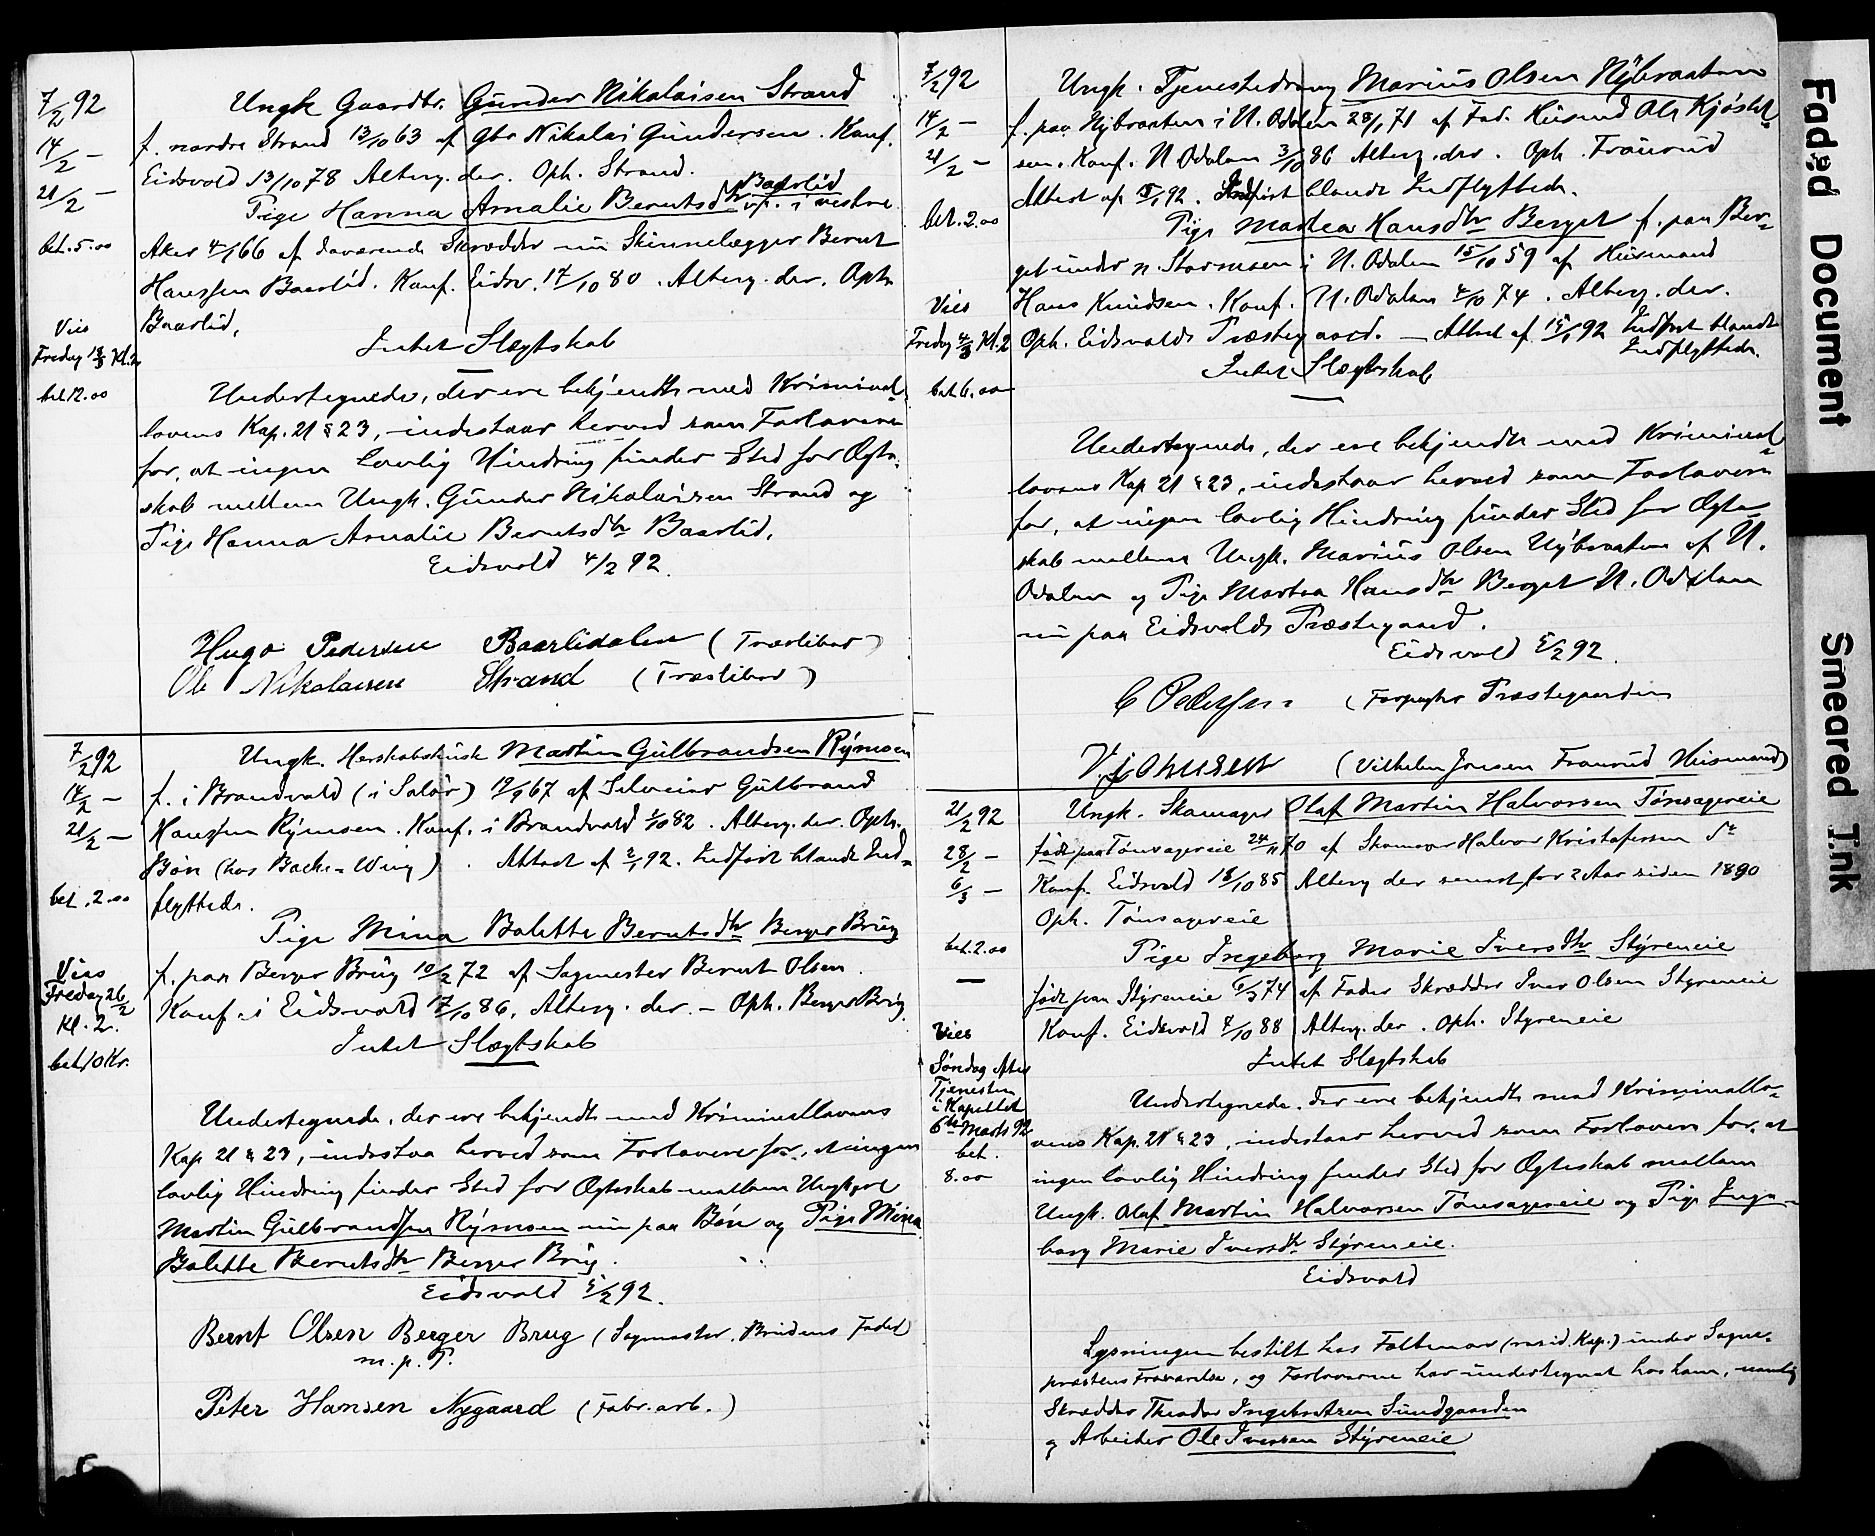 7/2 92
14/2 —
21/2 —
bet. 5.00
Vies
Fredag 18/3 Kl. 2
bet 12.00
Ungk Gaardbr. Gunder Nikolaisen Strand
f. nordre Strand 13/10 63 af Gbr Nikolai Gundersen. Konf.
Eidsvold 13/10 78 Alterg. der. Oph. Strand.
Pige Hanna Amalie Berntsdtr Baarlid f. i vestre
Aker 4/1 66 af daværende Skrædder nu Skinnelægger Bernt
Hanssen Baarlid. Konf. Eidsv. 17/10 80. Alterg. der. Oph.
Baarlid.
Intet Slægtskab
Undertegnede, der ere bekjendte med Kriminal
lovens Kap. 21 § 23, indestaar herved som Forlovere
for, at ingen lovlig Hindring finder Sted for Ægte-
skab mellem Ungk. Gunder Nikolaisen Strand og
Pige Hanna Amalie Berntsdtr Baarlid.
Eidsvold 4/2 92.
Hugo Pedersen Baarlidalen (Træslibar)
Ole Nikolaisen Strand (Træslibar)
7/2 92
14/2 —
21/2 —
bet. 2.00
Vies
Fredag 26/2
Kl. 2.
bet 10 Kr.
Ungk. Herskabskusk Martin Gulbrandsen Rymoen
f. i Brandvold (i Solør) 19/9 67 af Selveier Gulbrand
Hanssen Rymoen. Konf. i Brandvold 1/10 82. Alterg. der. Oph.
Bøn (hos Bache-Wiig). Attest af 2/1 92. Indført blandt Ind-
flyttede.
Pige Mina Bolette Berntsdtr Berger Brug
f. paa Berger Brug 10/2 72 af Sagmester Bernt Olsen.
Konf. i Eidsvold 17/10 86. Alterg. der. — Oph. Berger Brug.
Intet Slægtskab
Undertegnede, der ere bekjendt med Kriminallovens
Kap 21 § 23, indestaa herved som Forlovere for, at ingen
lovlig Hindring finder Sted for Ægteskab mellem Ungkarl
Martin Gulbrandsen Rymoen nu paa Bøn og Pige Mina
Bolette Berntsdtr Berger Brug.
Eidsvold 5/2 92.
Bernt Olsen Berger Brug (Sagmester, Brudens Fader)
m. p. P.
Peter Hansen Nygaard (Fabr. arb.)
7/2 92
14/2 —
21/2 —
bet. 2.00
Vies
Fredag 4/3 Kl. 2
bet 6.00
Ungk. Tjenestedreng Marius Olsen Nybraaten
f. paa Nybraaten i N. Odalen 28/1 71 af Fad. Husmand Ole Kjøstel-
sen. Konf. N Odalen 3/10 86 Alterg. der. Oph. Traurud
Attest af 15/1 92. Indført blandt Indflyttede.
Pige Martea Hansdtr Berget f. paa Ber-
get under n. Stormoen i N. Odalen 15/10 59 af Husmand
Hans Knudsen. Konf. N. Odalen 4/10 74. Alterg. der.
Oph. Eidsvolds Præstegaard. — Attest af 15/1 92 Indført blandt
Indflyttede.
Intet Slægtskab
Undertegnede, der ere bekjendte med Kriminal-
lovens Kap 21 § 23, indestaar herved som Forlovere
for, at ingen lovlig Hindring finder Sted for Ægte-
skab mellem Ungk. Marius Olsen Nybraaten af N.
Odalen og Pige Martea Hansdtr Berget N. Odalen
nu paa Eidsvolds Præstegaard.
Eidsvold 5/2 92.
C Pedersen (Forpagter Præstegaarden
V. Johnsen (Vilhelm Jonsen Traurud Husmand)
21/2 92
28/2 —
6/3 —
bet. 2.00
Vies
Søndag efter
Tjenesten
i Kapellet
6te Marts 92
bet.
8.00
Ungk. Skomager Olaf Martin Halvorsen Tønsagereie
født paa Tønsagereie 24/11 70 af Skomager Halvor Kristofersen
Konf. Eidsvold 18/10 85 Alterg der senest for 2 Aar siden 1890
Oph. Tønsagereie
Pige Ingeborg Marie Iversdtr Styreneie
født paa Styreneie 5/3 74 af Fader Skrædder Iver Olsen Styreneie
Konf. Eidsvold 7/10 88 Alterg. der. Oph. Styreneie
Intet Slægtskab
Undertegnede, der ere bekjendte med Kriminallo-
vens Kap. 21 § 23, indestaar herved som Forlovere for, at
ingen lovlig Hindring finder Sted for Ægteskab mellem
Ungk. Olaf Martin Halvorsen Tønsagereie og Pige Inge-
borg Marie Iversdtr Styreneie.
Eidsvold
Lysningen bestilt hos Foltmar (resid. Kap.) under Sogne-
præstens Fraværelse, og Forloverne har undertegnet hos ham, nemlig
Skrædder Theodor Ingebretsen Sundgaarden
og Arbeider Ole Iversen Styreneie
Faded Document
Smeared Ink